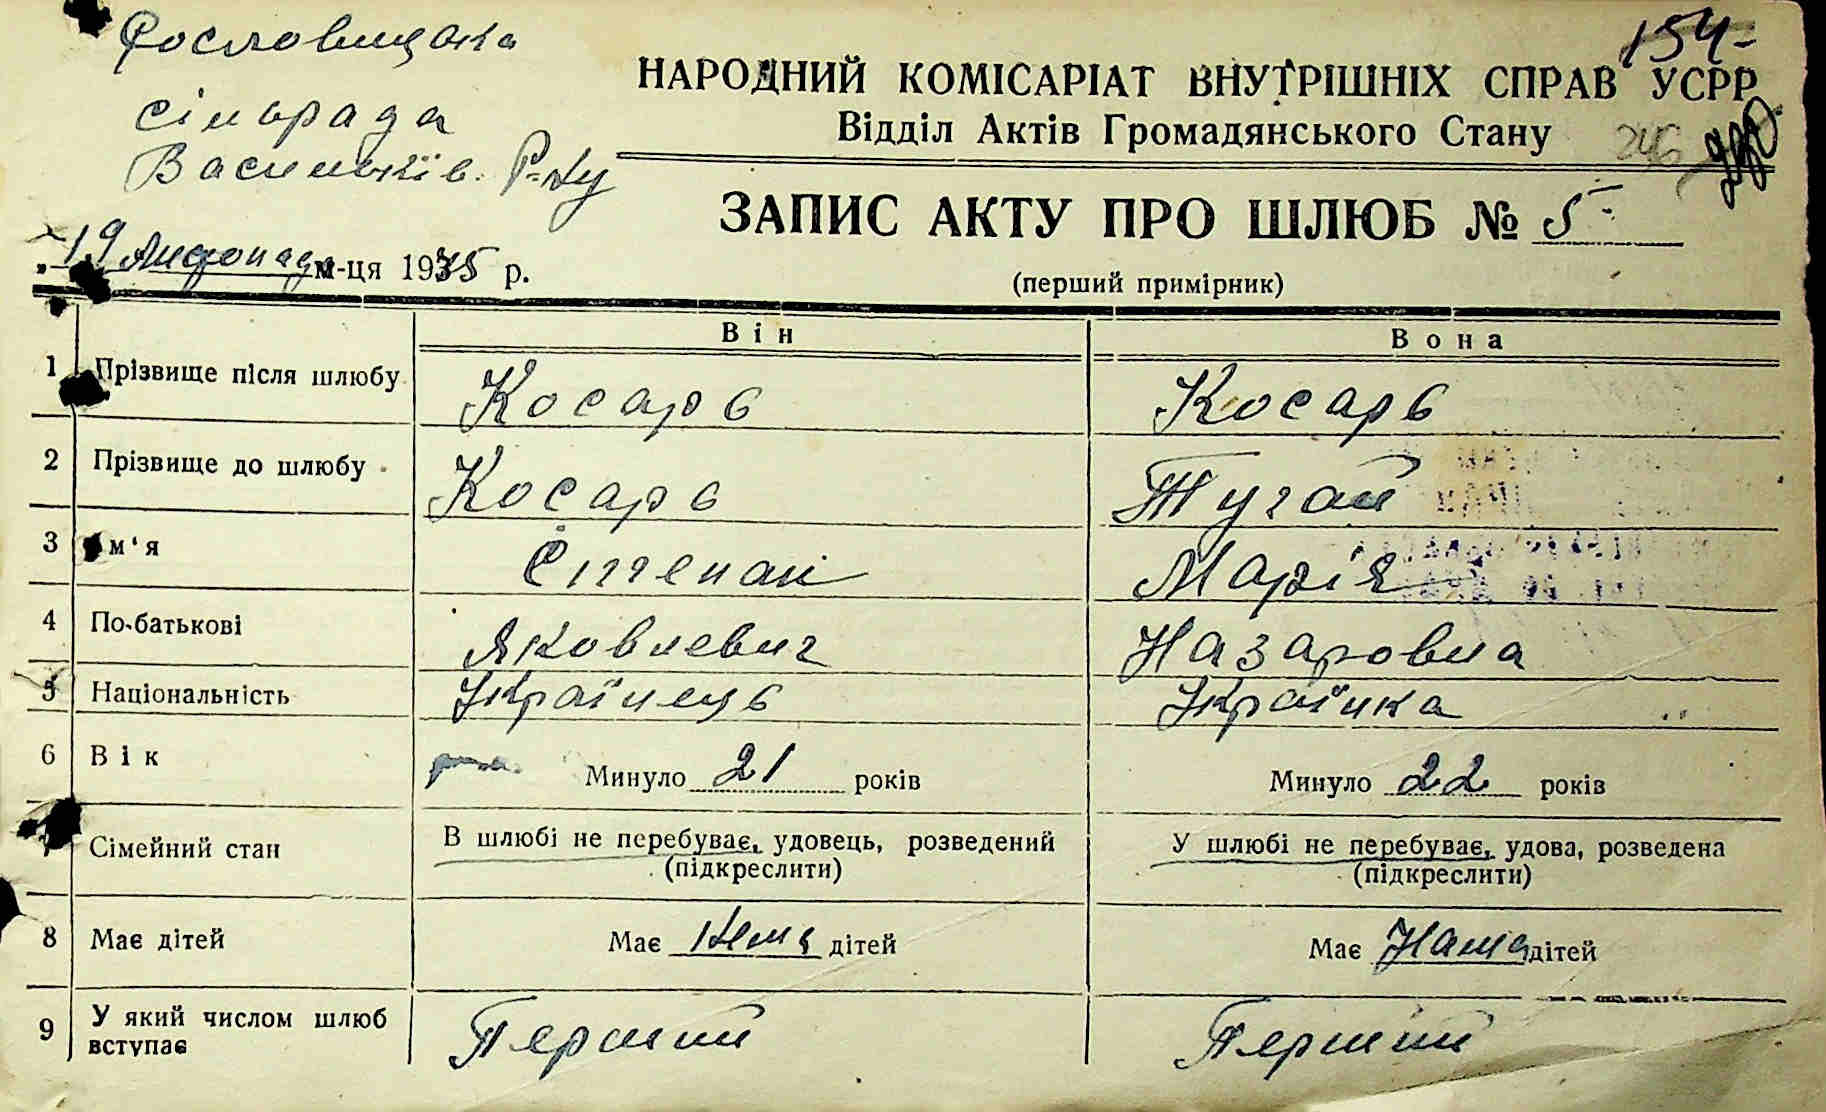 Рословицька
154-
сільрада
Васильків. Р-ну
НАРОДНИЙ КОМІСАРІАТ ВНУТРІШНІХ СПРАВ УСРР
Відділ Актів Громадянського Стану
246
ЗАПИС АКТУ ПРО ШЛЮБ № 5
„19 Листопада м-ця 1935 р.
(перший примірник)
Він Вона
1 Прізвище після шлюбу Косарь Косарь
2 Прізвище до шлюбу Косарь Тугай
3 Ім'я Степан Марія
4 По-батькові Яковлевич Назаровна
5 Національність Українець Українка
6 Вік Минуло 21 років Минуло 22 років
7 Сімейний стан В шлюбі не перебуває, удовець, розведений У шлюбі не перебуває, удова, розведена
(підкреслити) (підкреслити)
8 Має дітей Має Нема дітей Має Нама дітей
9 У який числом шлюб вступає Перший Перший